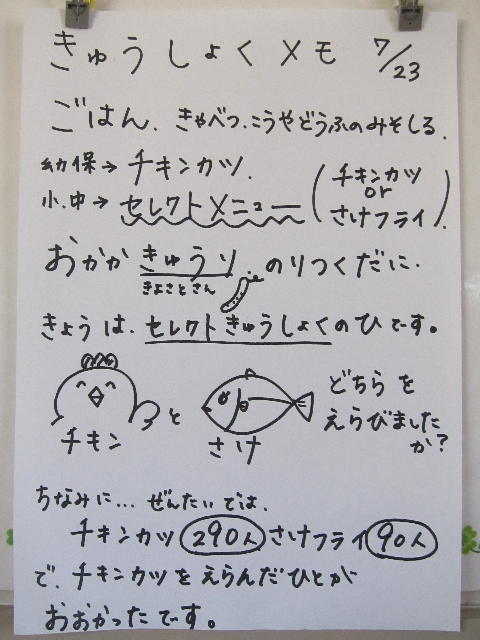 きゅうしょくメモ 7/23
ごはん、きゃべつ、こうやどうふのみそしる、
幼保→チキンカツ、
小、中→セレクトメニュー(チキンカツ or さけフライ)、
おかかきゅうり、のりつくだに、
きよさとさん
きょうは、セレクトきゅうしょくのひです。
チキン と さけ どちらをえらびましたか?
ちなみに…ぜんたいでは、
チキンカツ 290人 さけフライ 90人
で、チキンカツをえらんだひとが
おおかったです。